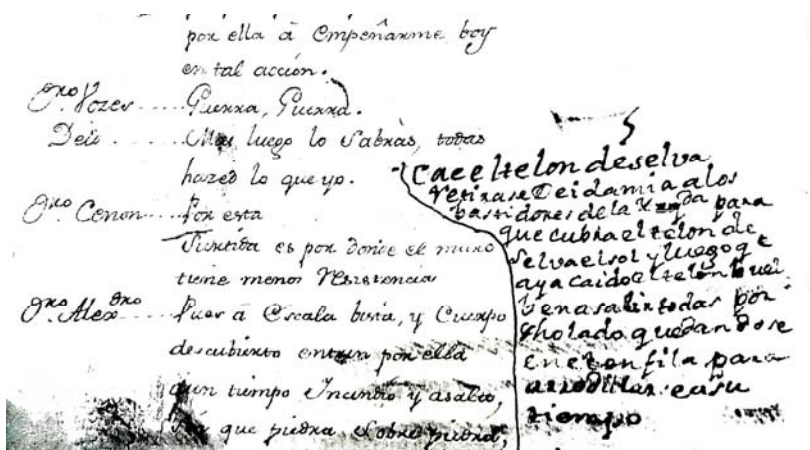 por ella â Empeñarme boy
en tal acción.
Dro. Vozes..... Guerra, Guerra.
Deid ..... Mas luego lo Sabràs, todas
hazed lo que yo.
Dro. Cenon.... Por esta
Surtida es por donde el muro
tiene menos Resistencia
Dro. Alexdro Pues â Escala bista, y Cuerpo
descubierto entren por ella
â un tiempo Incendio y asalto,
que piedra sobre piedra,
Cae el telon de selva
retirase Deidamia a los
bastidores de la para
que cubra el telon de
selva el sol y luego qe
aya caido el telon buel
ben a salir todas por
dho lado quedandose
en eton fila para
arrodillar. easu
tiempo